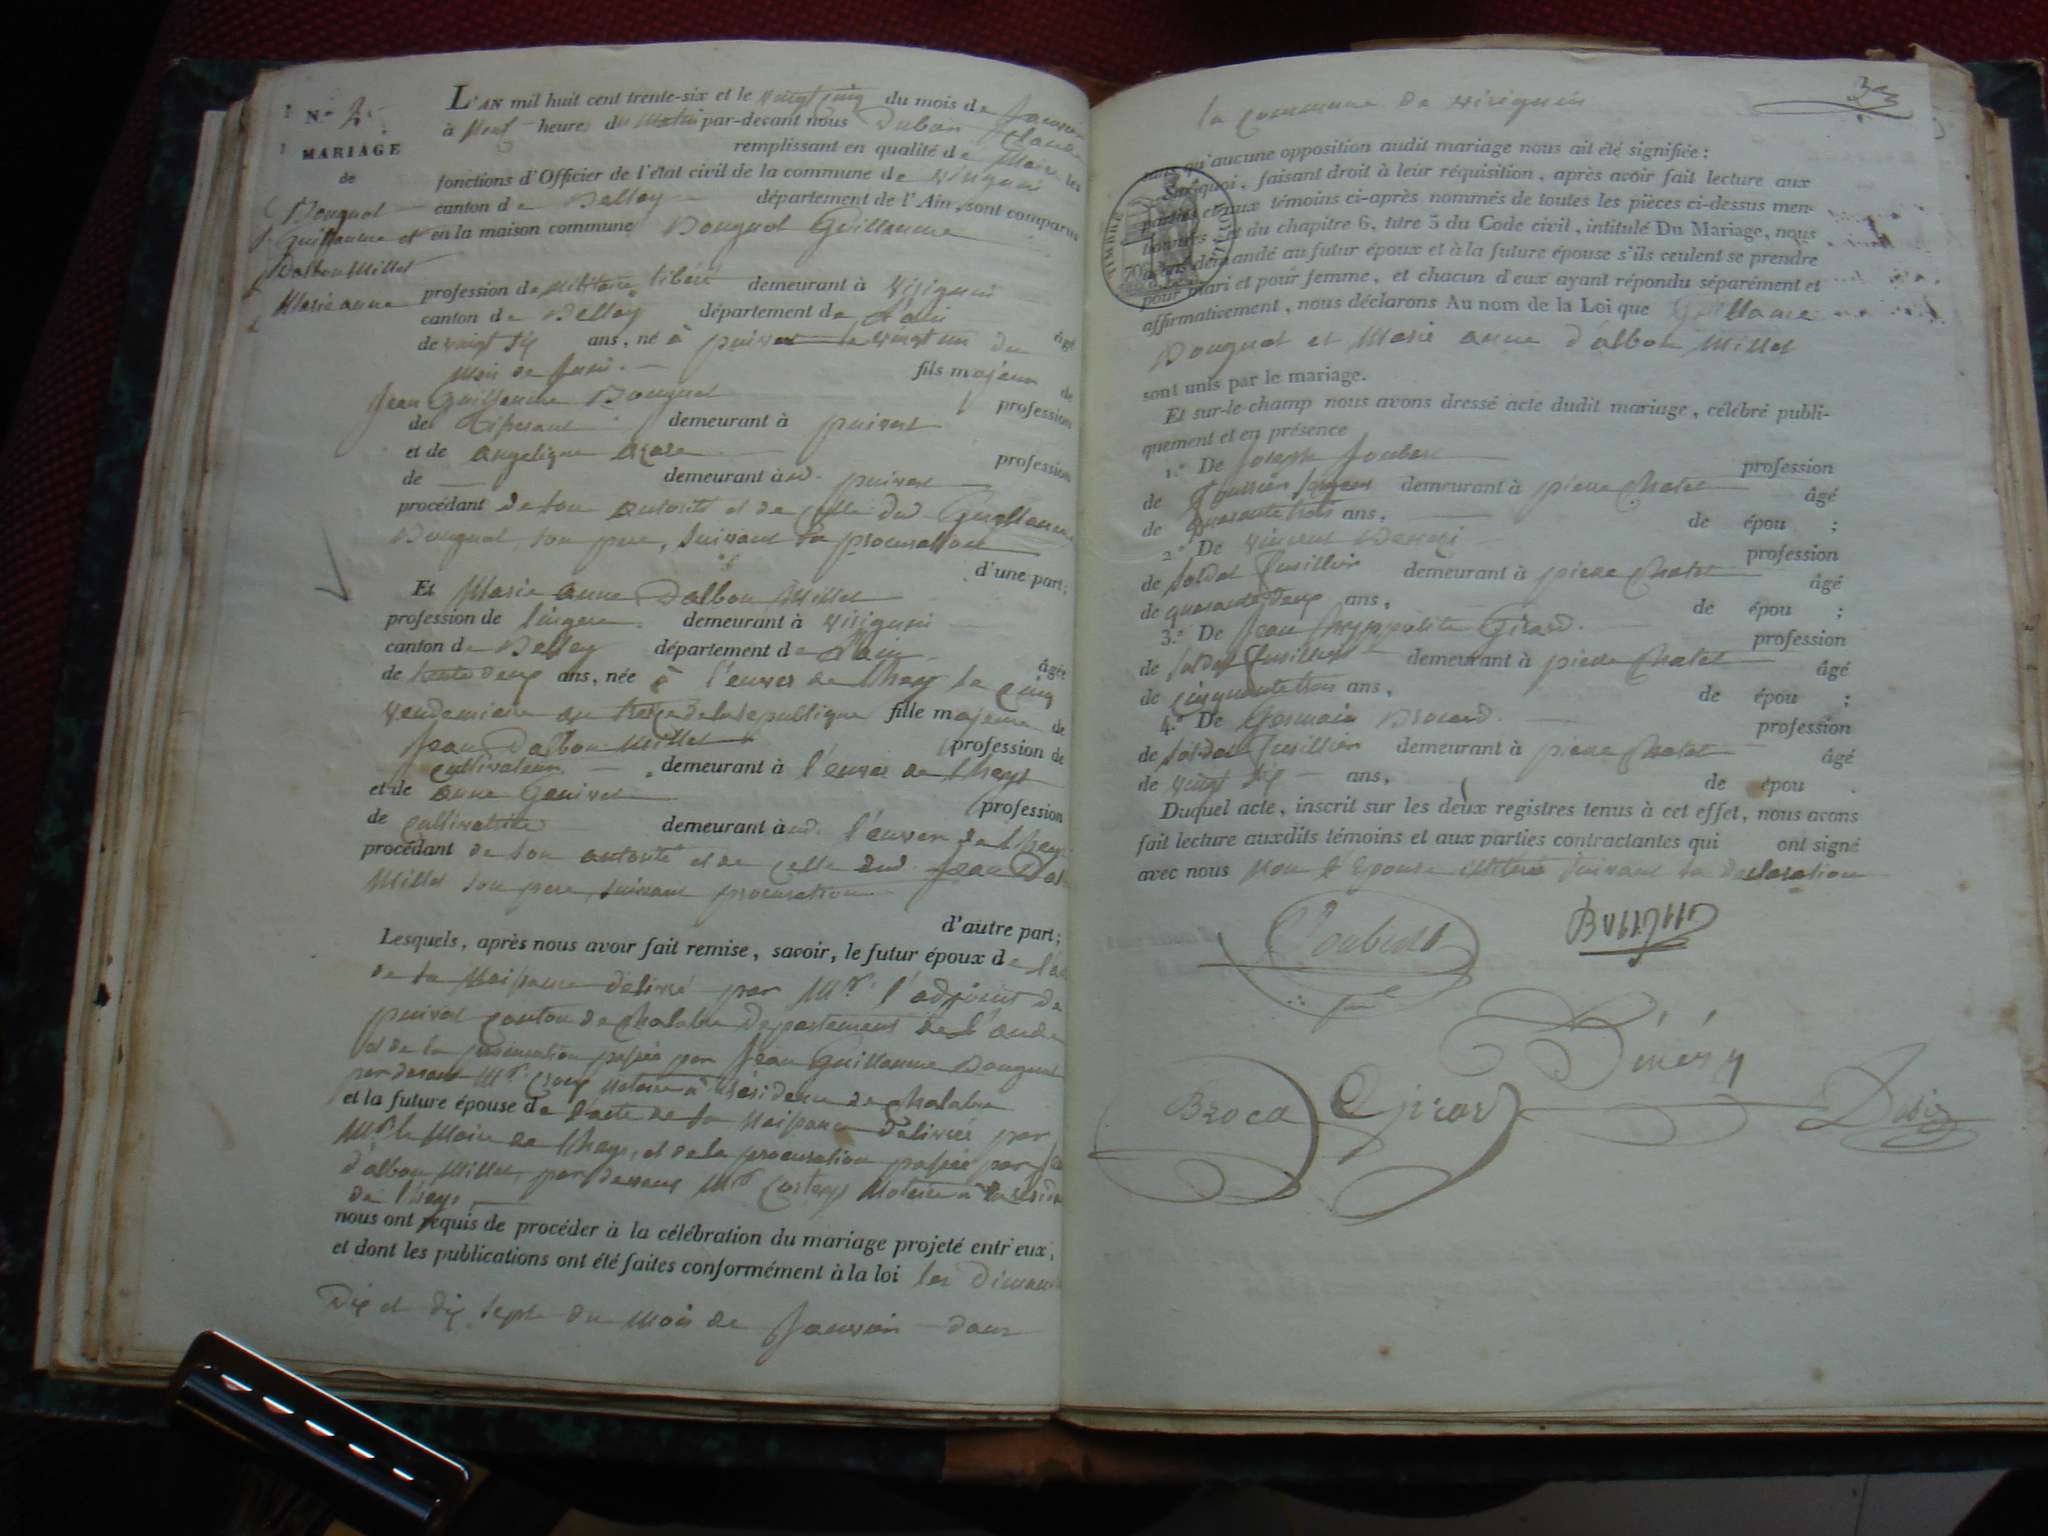 N.º 2.
MARIAGE
de
Bouguol
Guillaume et
Dalbon Millet
Marie anne
L'AN mil huit cent trente-six et le vingt cinq du mois de Janvier
à Neuf heures du Matin par-devant nous Dubois Claude
remplissant en qualité de Maire les
fonctions d'Officier de l'état civil de la commune de virignin
canton de Belley département de l'Ain, sont comparus
en la maison commune Bouguol Guillaume
profession de militaire libéré demeurant à virignin
canton de Belley département de L'ain âgé
de vingt six ans, né à puivert le vingt un du
Mois de fils majeur de
Jean Guillaume Bouguol profession
de tisserant demeurant à puivert
et de angelique profession
de demeurant à ud. puivert
procédant de son autorité et de celle dud. Guillaume
Bouguol, son pere, suivant la procuration
d'une part;
Et Marie anne Dalbon Millet
profession de lingere demeurant à virignin
canton de Belley département de L'ain âgée
de trente deux ans, née à de theys le cinq
vendemiaire an treize de la republique fille majeure de
Jean Dalbon Millet profession de
cultivateur demeurant à de theys
et de anne profession
de cultivatrice demeurant à ud. de theys
procédant de son autorité et de celle dud. Jean Dal
Millet son pere, suivant procuration
d'autre part;
Lesquels, après nous avoir fait remise, savoir, le futur époux de l'ac
de sa Naissance délivré par Mr. l'adjoint de
puivert canton de Chalabre département de l'aude
et de la procuration passée par Jean Guillaume Bouguol
par devant Mr. notaire à résidence de Chalabre
et la future épouse de l'acte de sa Naissance délivrée par
Mr. le Maire de theys, et de la procuration passée par
d'albon Millet, par devant Mr. Notaire à la résiden
de theys
nous ont requis de procéder à la célébration du mariage projeté entr'eux,
et dont les publications ont été faites conformément à la loi les Dimanc
Dix et dix sept du Mois de Janvier dans
la commune de virignin
sans qu'aucune opposition audit mariage nous ait été signifiée;
Sur quoi, faisant droit à leur réquisition, après avoir fait lecture aux
parties et aux témoins ci-après nommés de toutes les pièces ci-dessus men-
tionnées et du chapitre 6, titre 5 du Code civil, intitulé Du Mariage, nous
avons demandé au futur époux et à la future épouse s'ils veulent se prendre
pour mari et pour femme, et chacun d'eux ayant répondu séparément et
affirmativement, nous déclarons Au nom de la Loi que Guillaume
Bouguol et Marie anne d'albon Millet
TIMBRE ROYAL
sont unis par le mariage.
Et sur-le-champ nous avons dressé acte dudit mariage, célébré publi-
quement et en présence
1.º De Joseph Joubert profession
de demeurant à pierre Chatel âgé
de quarante trois ans, de épou ;
2.º De vincent profession
de soldat fusillier demeurant à pierre Chatel âgé
de quarante deux ans, de épou ;
3.º De Jean hyppolite Girard. profession
de soldat fusillier demeurant à pierre Chatel âgé
de cinquante trois ans, de épou ;
4.º De Germain Brocard. profession
de soldat fusillier demeurant à pierre Chatel âgé
de vingt six ans, de épou .
Duquel acte, inscrit sur les deux registres tenus à cet effet, nous avons
fait lecture auxdits témoins et aux parties contractantes qui ont signé
avec nous Non l'Epouse illitéré suivant sa déclaration
Joubert
Brocard Girard